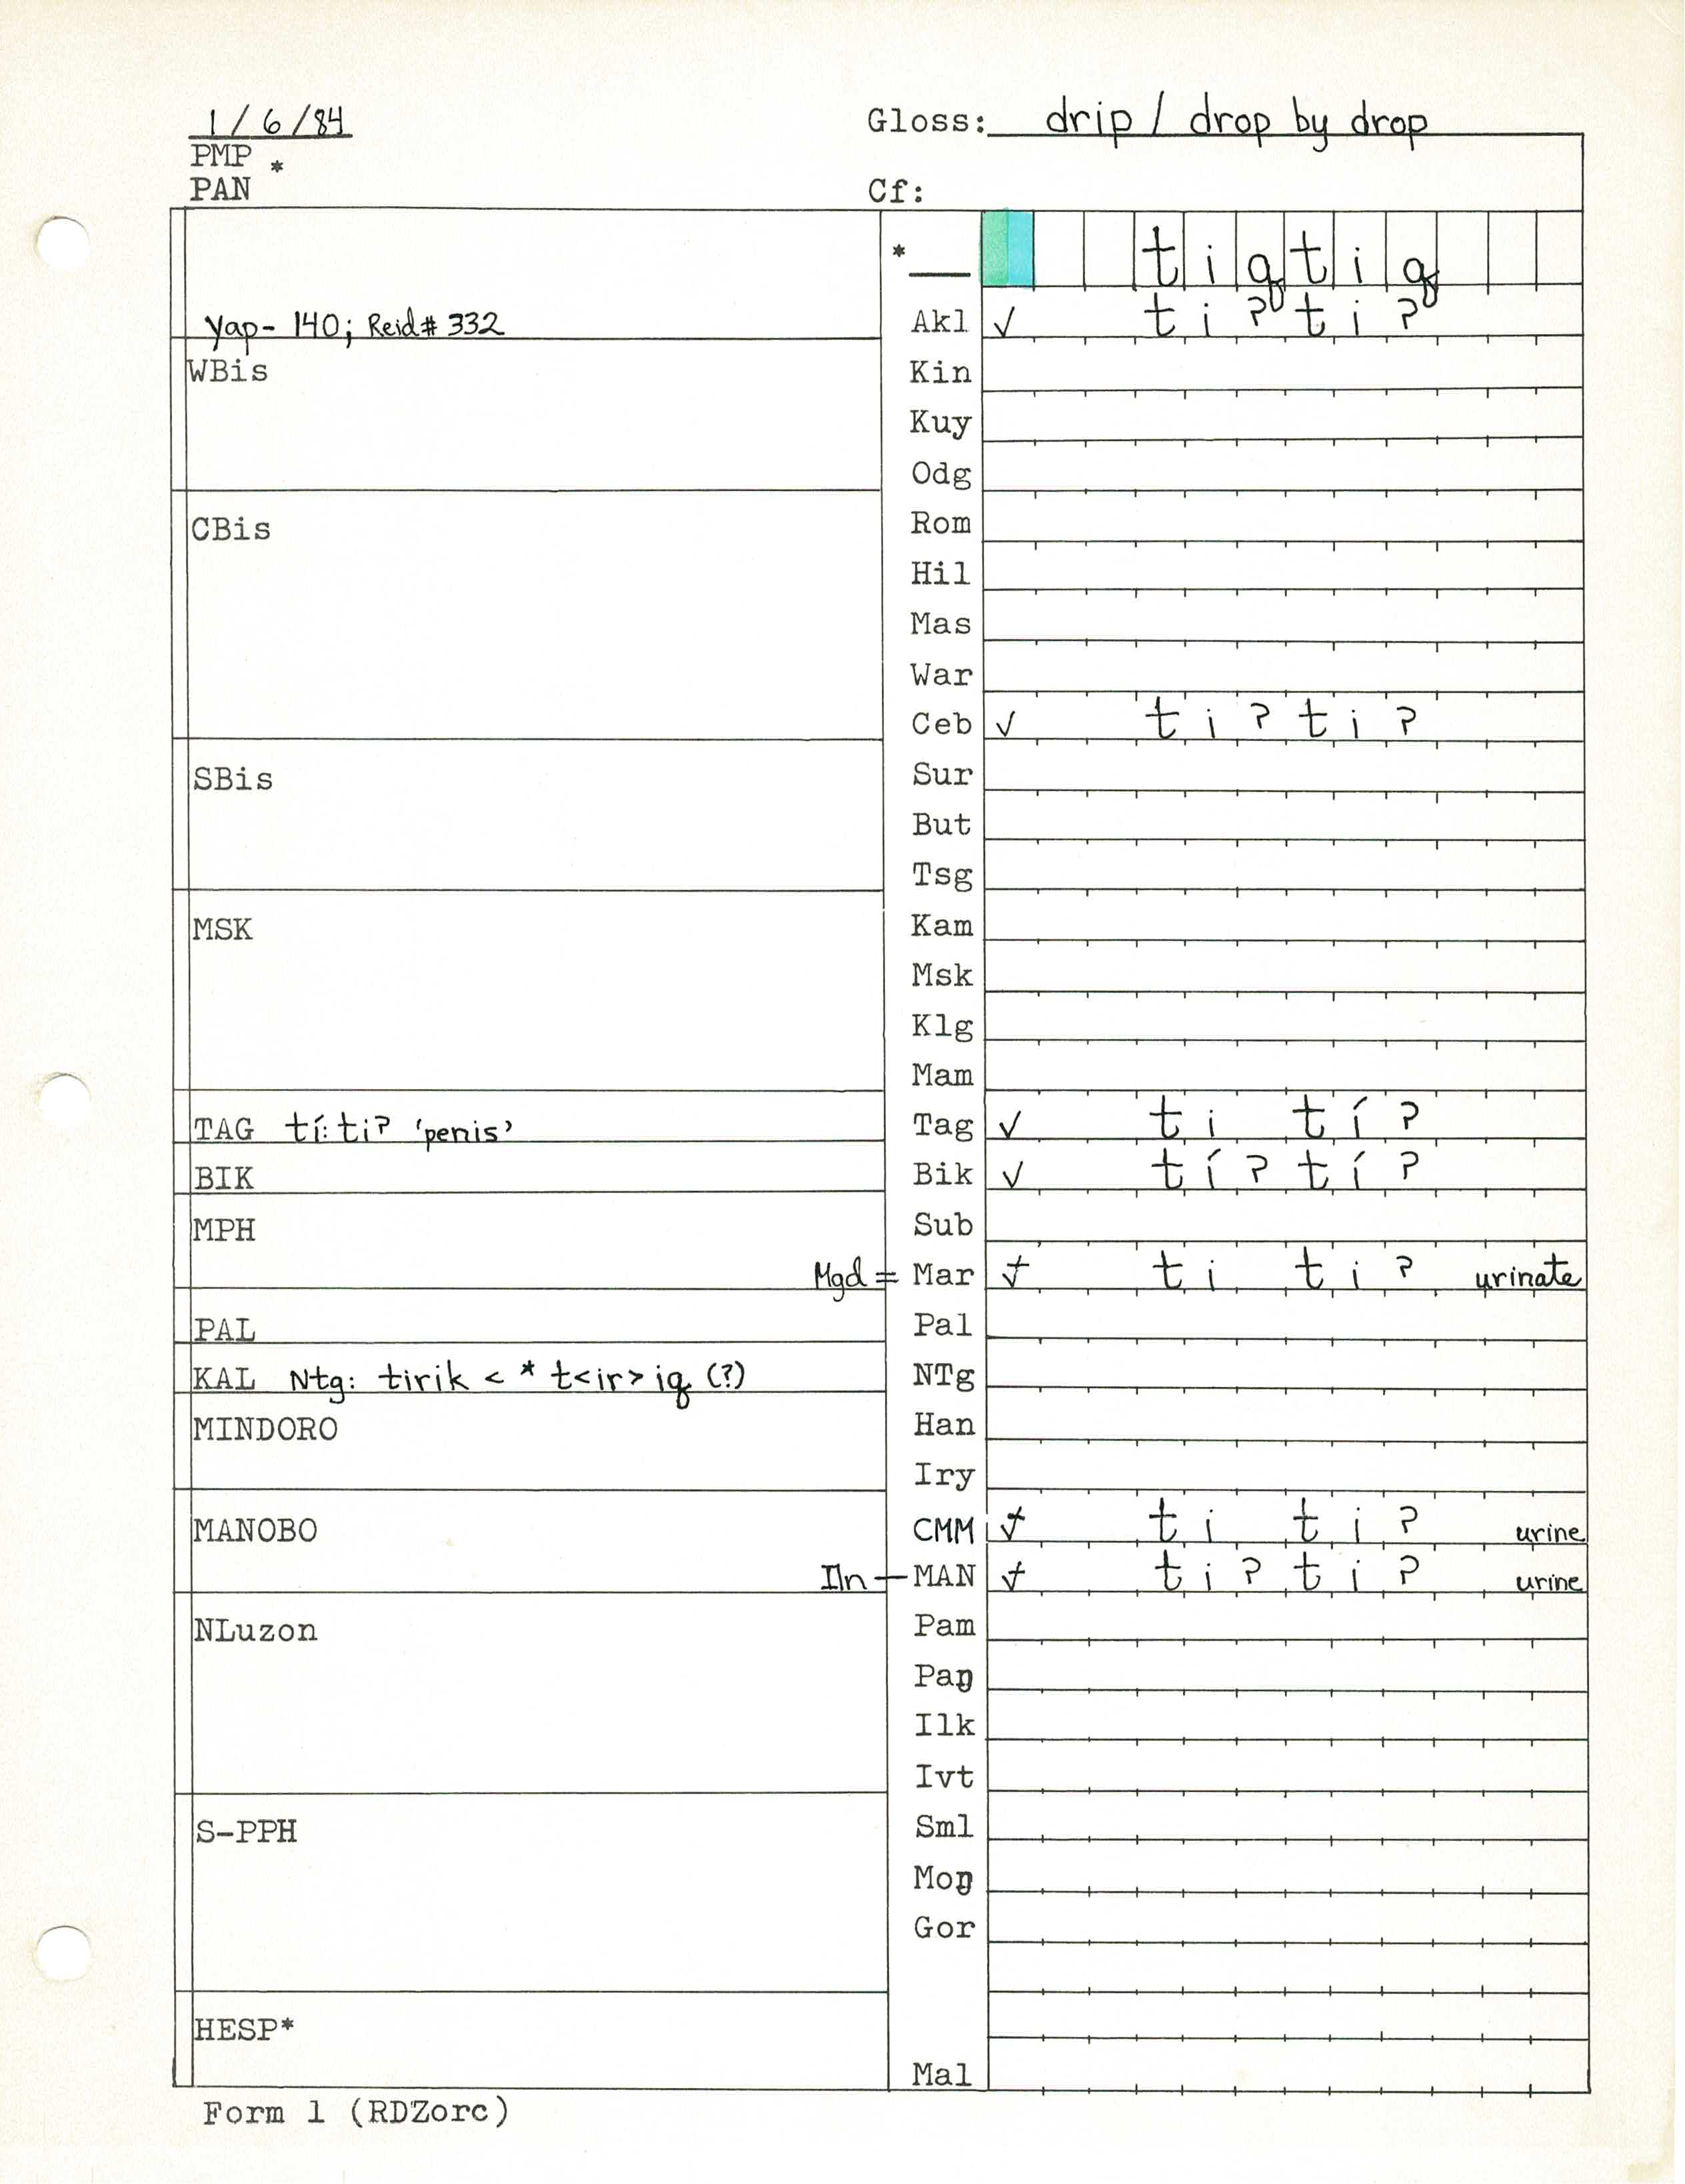 1/6/84 Gloss: drip / drop by drop
PMP *
PAN Cf:
*___ t i q t i q
Yap- 140; Reid# 332 Akl √ t i ʔ t i ʔ
WBis Kin
Kuy
Odg
CBis Rom
Hil
Mas
War
Ceb √ t i ʔ t i ʔ
SBis Sur
But
Tsg
MSK Kam
Msk
Klg
Mam
TAG tí:tiʔ 'penis' Tag √ t i t í ʔ
BIK Bik √ t í ʔ t í ʔ
MPH Sub
Mgd = Mar √ t i t i ʔ urinate
PAL Pal
KAL Ntg: tirik < * t<ir>iq (?) NTg
MINDORO Han
Iry
MANOBO CMM √ t i t i ʔ urine
Iln – MAN √ t i ʔ t i ʔ urine
NLuzon Pam
Paŋ
Ilk
Ivt
S-PPH Sml
Moŋ
Gor
HESP*
Mal
Form 1 (RDZorc)